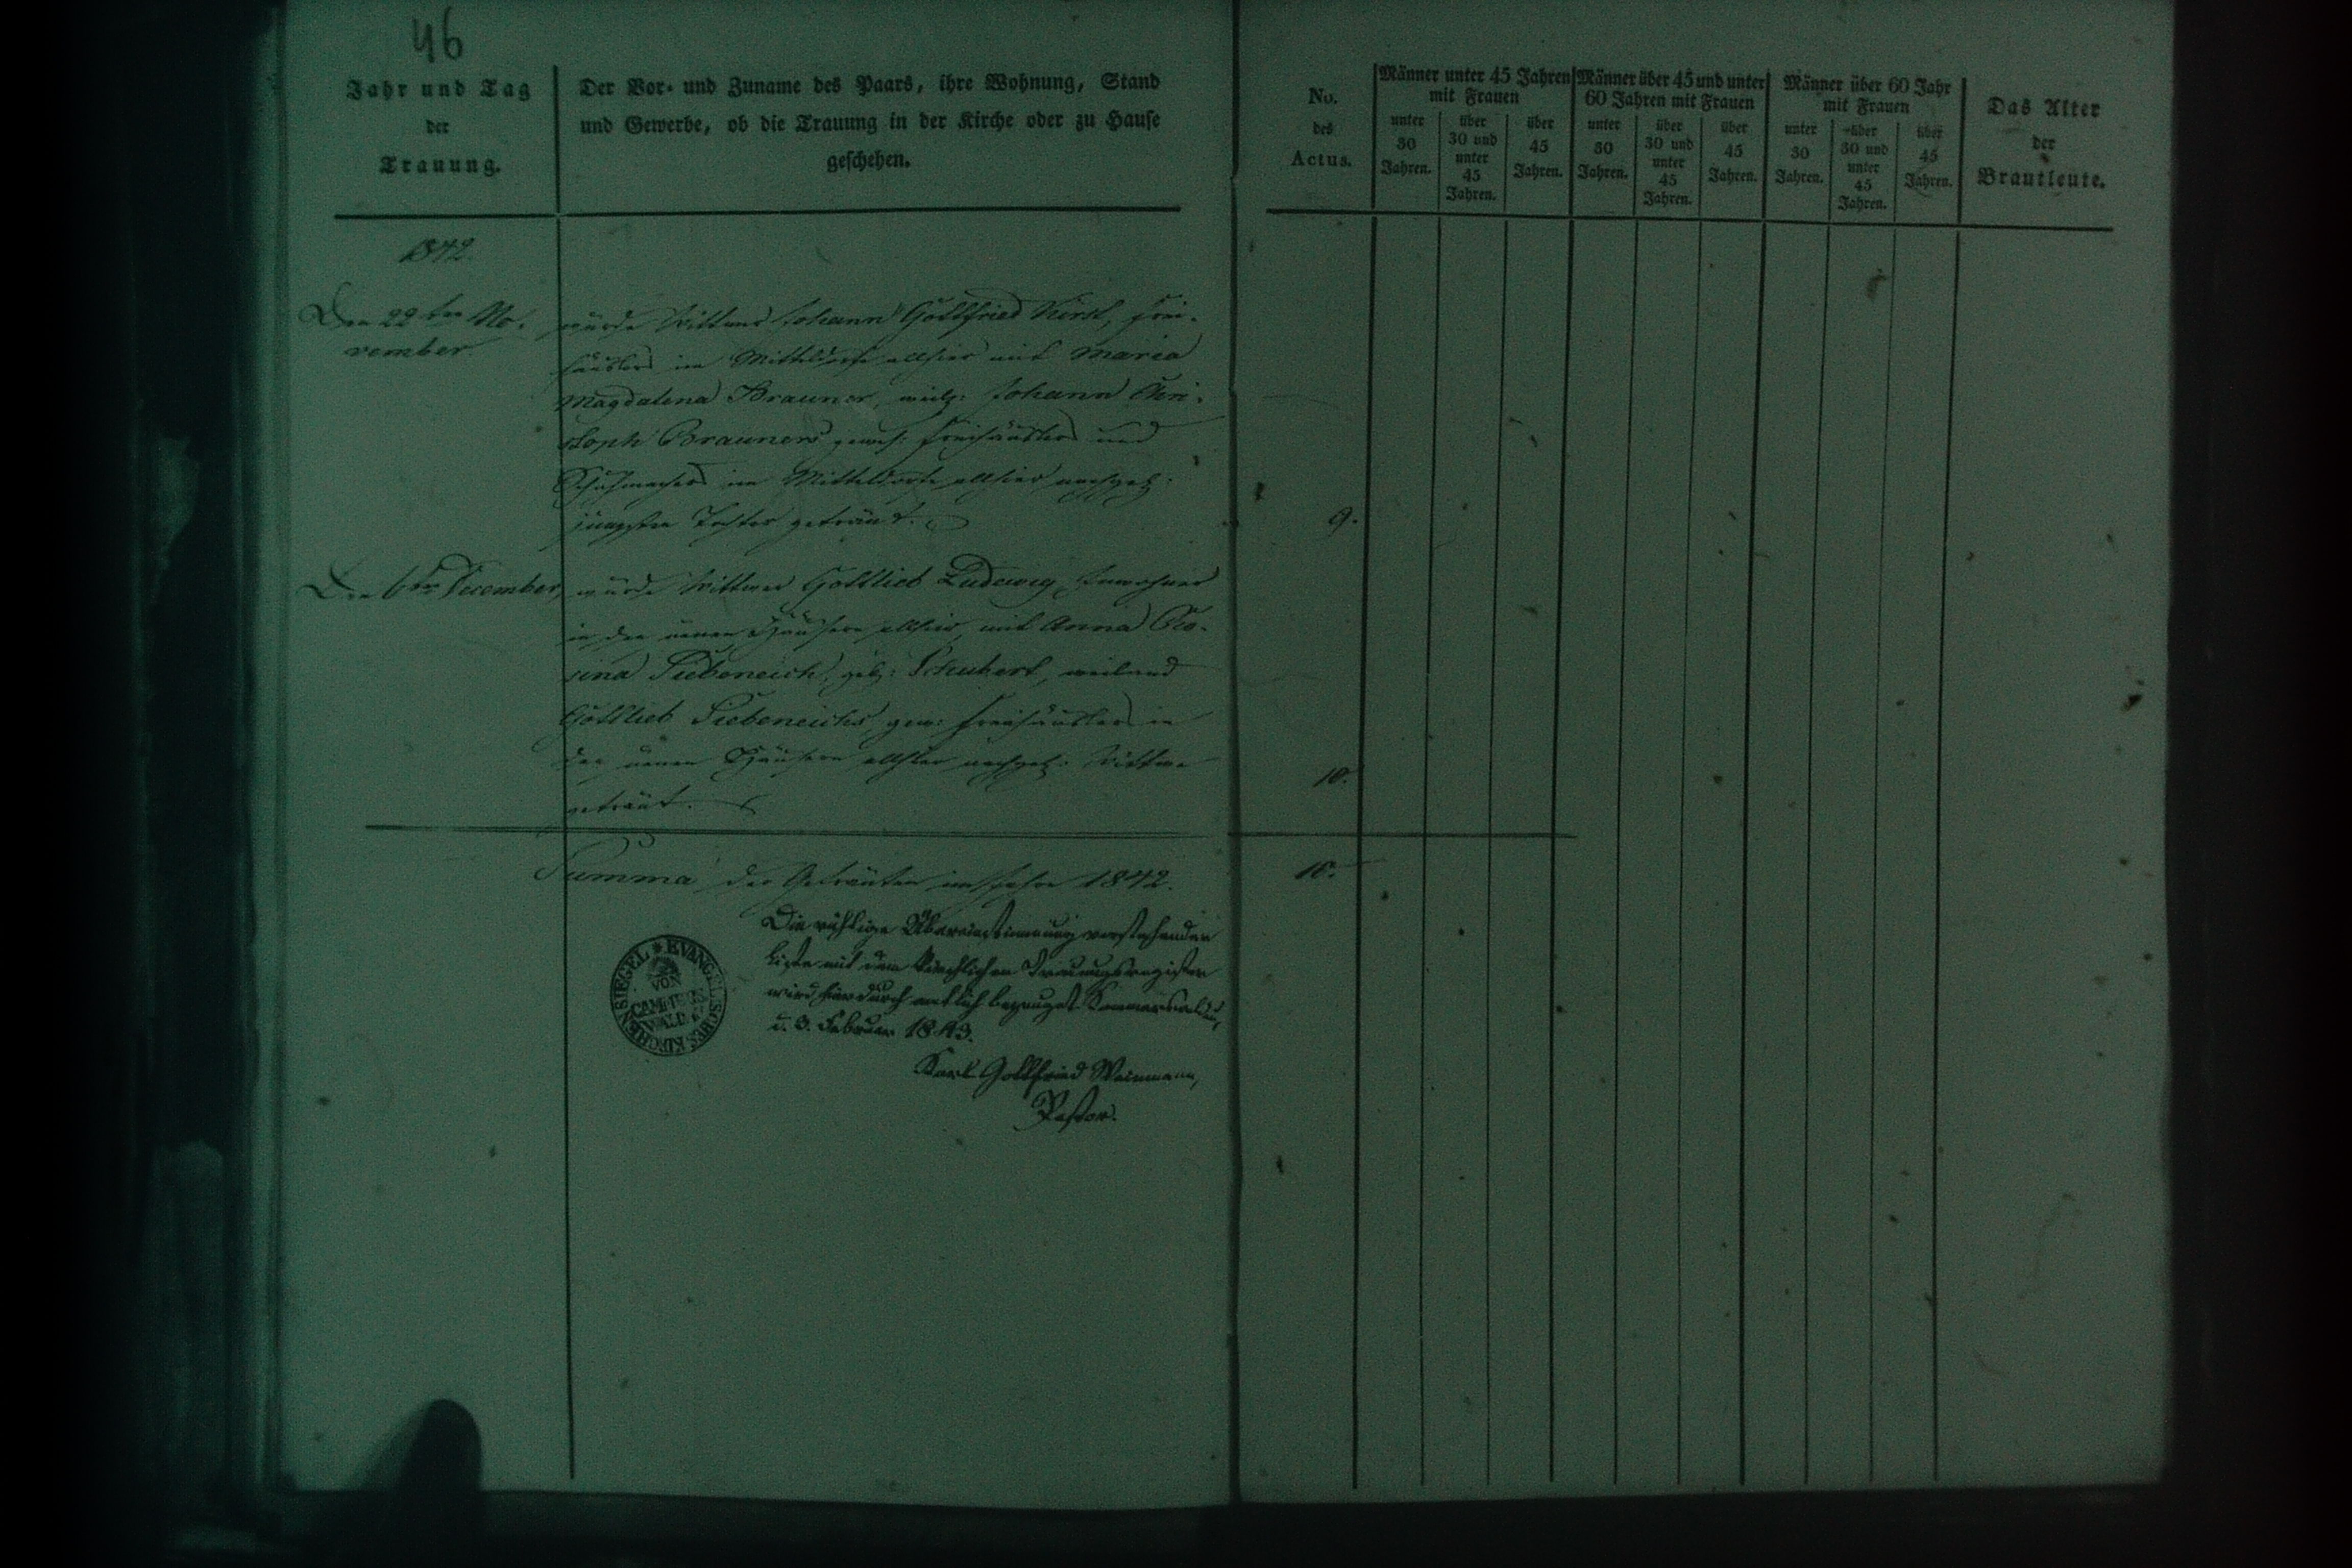 46
Jahr und Tag
der
Trauung.
Der Vor- und Zuname des Paars, ihre Wohnung, Stand
und Gewerbe, ob die Trauung in der Kirche oder zu Hause
geschehen.
No.
des
Actus.
Männer unter 45 Jahren
mit Frauen
unter
30
Jahren.
über
30 und
unter
45
Jahren.
über
45
Jahren.
Männer über 45 und unter
60 Jahren mit Frauen
unter
30
Jahren.
über
30 und
unter
45
Jahren.
über
45
Jahren.
Männer über 60 Jahr
mit Frauen
unter
30
Jahren.
über
30 und
unter
45
Jahren.
über
45
Jahren.
Das Alter
der
Brautleute.
1842.
Den 22ten No-
vember.
wurde Wittwer Johann Gottfried Kirst, Frei-
häusler im Mitteldorfe allhier mit Maria
Magdalena Brauner, weil: Johann Chri-
stoph Brauners gewes: Freihäuslers und
Schuhmachers im Mitteldorfe allhier nachgel:
jüngsten Tochter getraut.
9.
Den 6ten December,
wurde Wittwer Gottlieb Ludewig, Inwohner
in den neuen Häusern allhier, mit Anna Ro-
sina Siebeneich, geb: Schubert, weiland
Gottlieb Siebeneichs, gew: Freihäuslers in
den neuen Häusern allhier nachgel: Wittwe
getraut.
10.
Summa der Getrauten im Jahre 1842.
10.
Die richtige Übereinstimmung vorstehender
Liste mit dem kirchlichen Trauungsregister
wird hierdurch amtlich bezeuget. Kammerswaldau,
d. 3. Februar 1843.
Karl Gottfried Weinmann,
Pastor.
EVANGELISCHES KIRCHENSIEGEL
VON